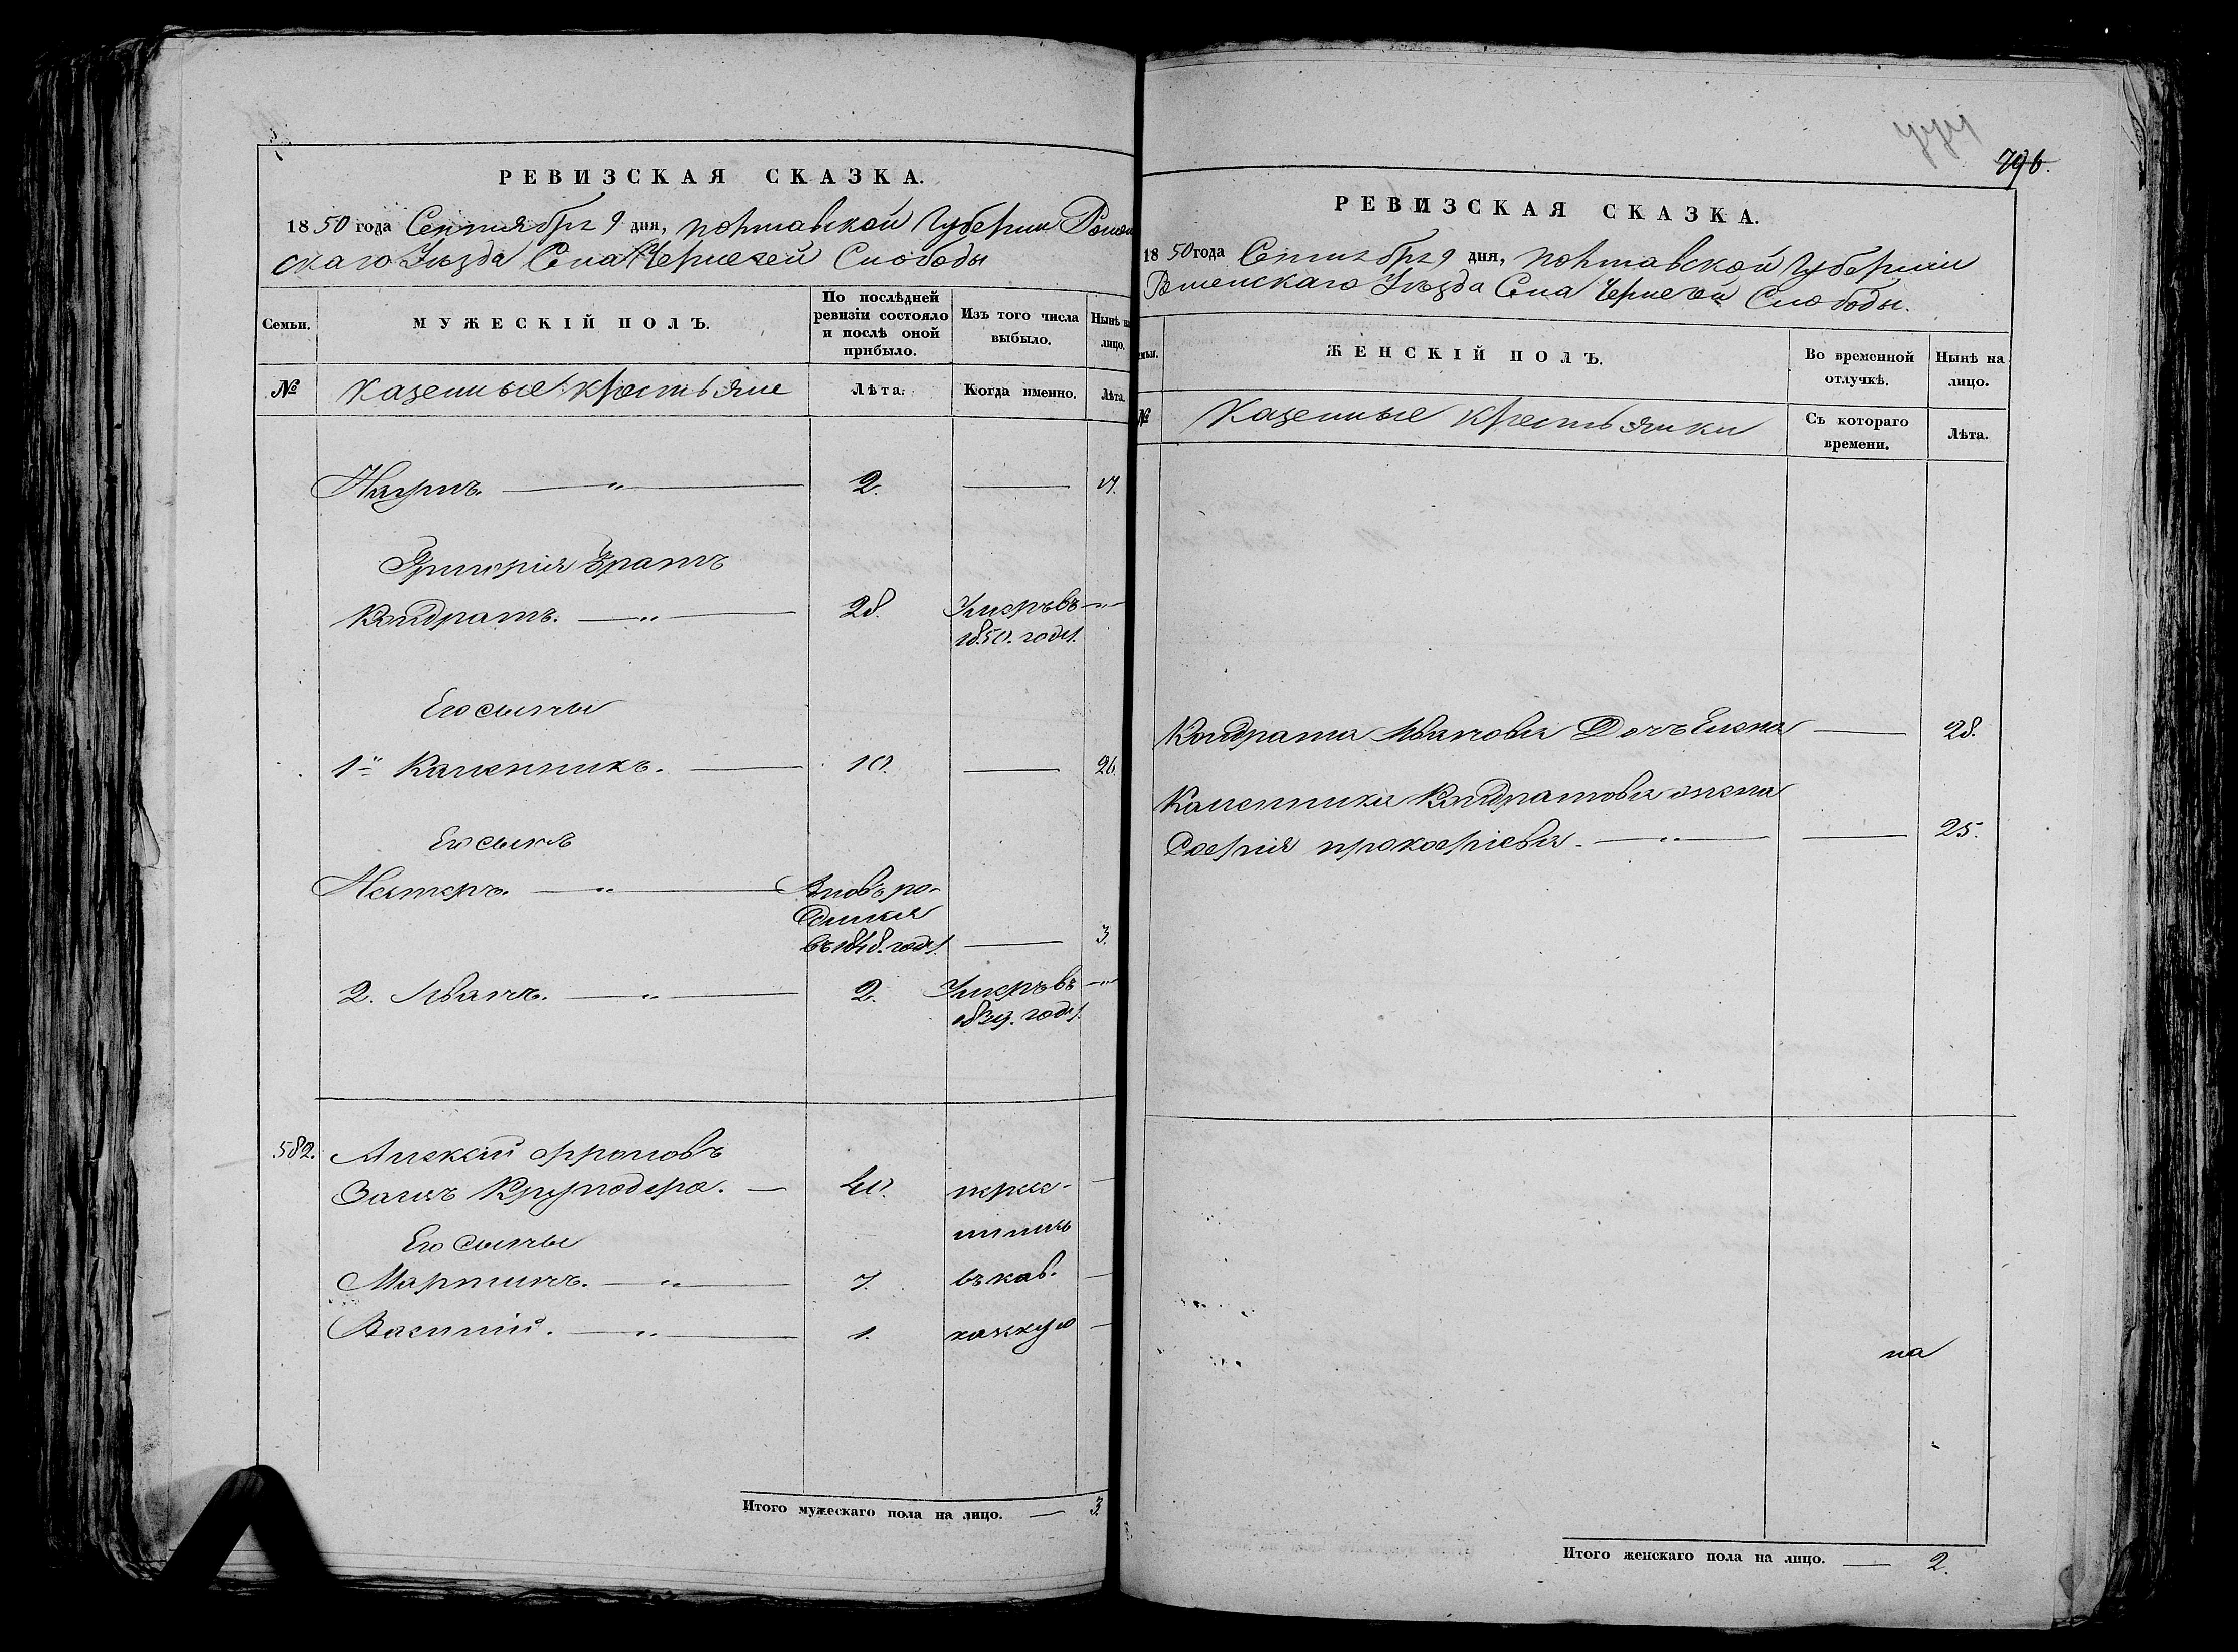 РЕВИЗСКАЯ СКАЗКА.
1850 года Сентября 9 дня, Полтавской Губернии Ромен
скаго Уѣзда Села Чернечей Слободы
Семьи.
МУЖЕСКІЙ ПОЛЪ.
По послѣдней ревизіи состояло и послѣ оной прибыло.
Изъ того числа выбыло.
Нынѣ на лицо.
№
Казенные крестьяне
Лѣта.
Когда именно.
Лѣта.
Наумъ. — „ — 2. —
Григорія братъ
Кондратъ. — „ — 28. Умеръ въ — „ —
1850. году.
Его сыны
1й Каленникъ. — 10. — 26.
Его сынъ
Нестеръ. — „ — Вновь ро-
дился
въ 1848. году. — 3.
2. Иванъ. — „ — 2. Умеръ въ — „ —
1839. году.
582. Алексей Фроловъ
Заецъ Круподера. — 40. пересе-
Его сыны
ленъ
Мартинъ. — „ — 7. въ кав-
Василій. — „ — 1. казскую
Итого мужескаго пола на лицо. — 3.
796.
РЕВИЗСКАЯ СКАЗКА.
1850 года Сентября 9 дня, Полтавской Губерніи
Роменскаго Уѣзда Села Чернечей Слободы.
ЖЕНСКІЙ ПОЛЪ.
Во временной отлучкѣ.
Нынѣ на лицо.
№
Казенные крестьянки
Съ котораго времени.
Лѣта.
Кондрата Иванова Дочь Елена — 28.
Каленника Кондратова жена
Софія Прокофіева. — „ — — 25.
на
Итого женскаго пола на лицо. — 2.